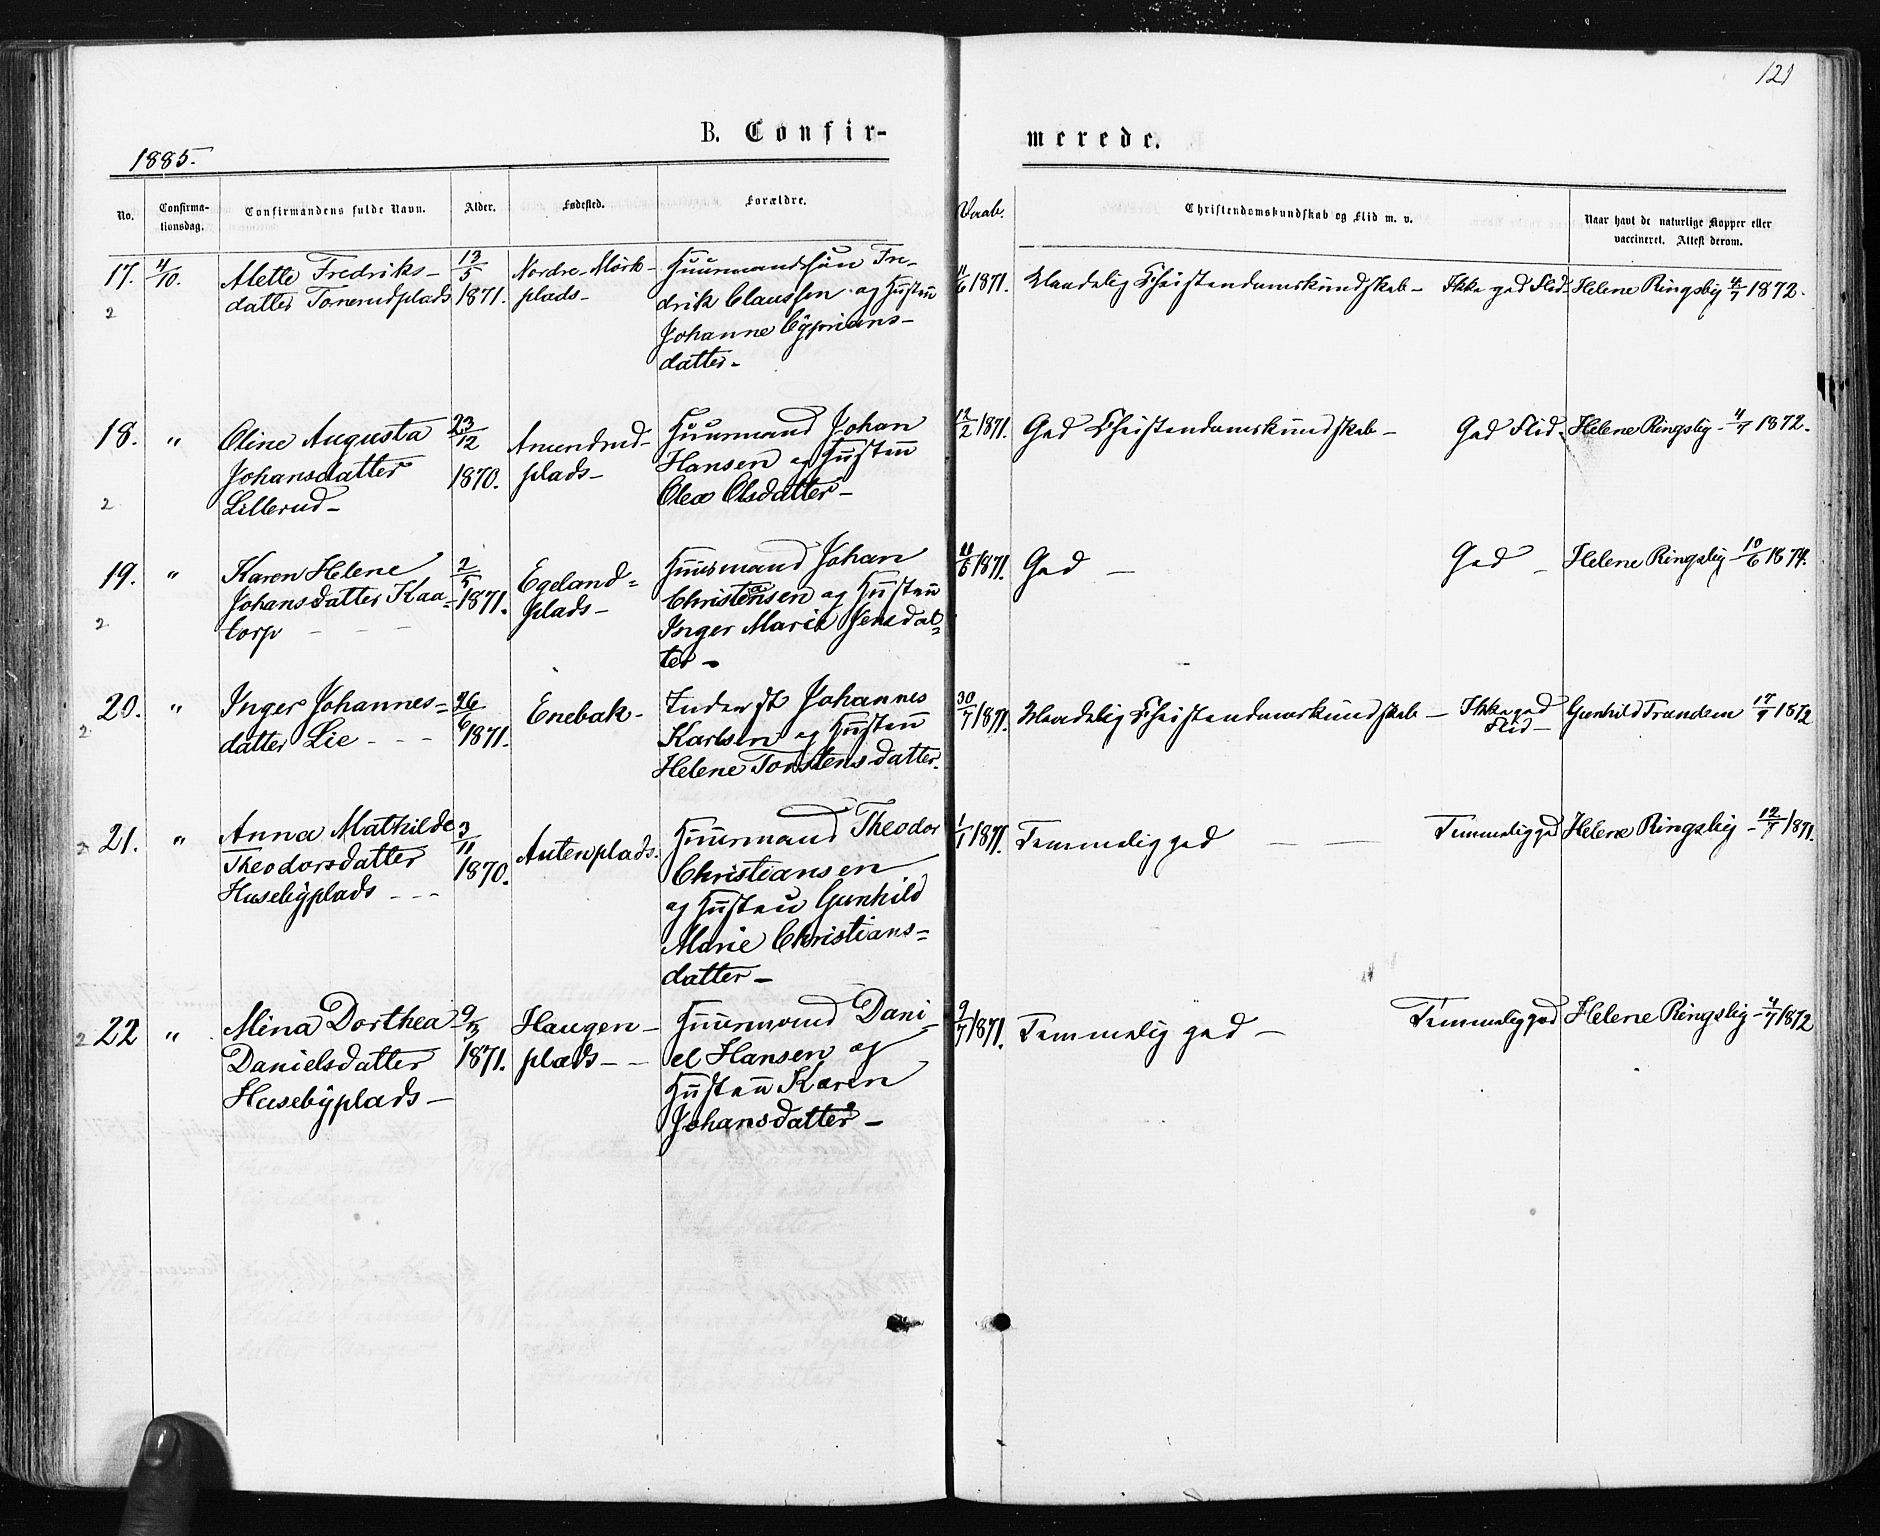 121
B. Confir-
merede.
1885.
No.
Confirma-
tionsdag.
Confirmandens fulde Navn.
Alder.
Fødested.
Forældre.
Vaab.
Christendomskundskab og Flid m. v.
Naar havt de naturlige Kopper eller
vaccineret. Attest derom.
17. 4/10. Mette Fredriks- 12/5 Nordre Mörk- Huusmandssøn Fre- 11/6 1871. Maadelig Christendomskundskab- Ikke god Flid- Helene Ringsby 4/7 1872.
datter Tonerudplads 1871. plads- drik Claussen og Hustru
2 Johanne Cyprians-
datter-
18. " Oline Augusta 23/12 Amundrud- Huusmand Johan 12/2 1871. God Christendomskundskab- God Flid- Helene Ringsby- 4/7 1872.
Johansdatter 1870. plads- Hansen og Hustru
2 Lillerud- Olea Olsdatter-
19. " Karen Helene 2/5 Egeland= Huusmand Johan 11/6 1871. God - God - Helene Ringsby- 10/6 1874.
Johansdatter Kaa= 1871. plads- Christensen og Hustru
2 torp - - - Inger Marie Jensdat=
ter-
20. " Inger Johannes= 26/6 Enebak- Inderst Johannes 30/7 1871. Maadelig Christendomskundskab- Ikke god Gunhild Trandem 17/7 1872
2 datter Lie - - - 1871. Karlsen og Hustru Flid-
Helene Torstensdatter.
21. " Anna Mathilde 3/11 Autenplads. Huusmand Theodor 1/1 1871. Temmelig god - - Temmelig god Helene Ringsby- 12/7 1871.
2 Theodorsdatter 1870. Christiansen
Husebyplads - - - og Hustru Gunhild
Marie Christians=
datter-
22 " Mina Dorthea 9/3 Haugen- Huusmand Dani- 9/7 1871. Temmelig god- Temmelig god Helene Ringsby- 4/7 1872
2 Danielsdatter 1871. plads- - el Hansen og
Husebyplads- Hustru Karen
Johansdatter-